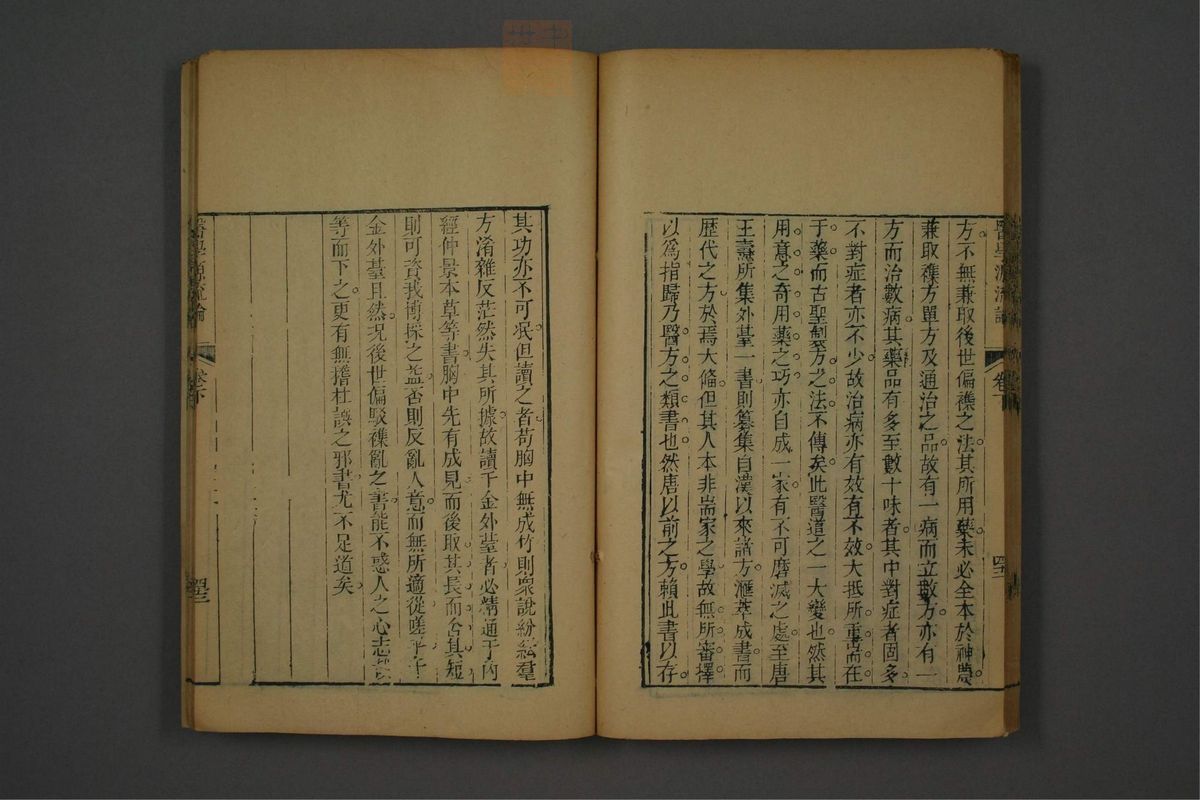 醫學源流論
卷下
方不無兼取後世偏襍之法其所用藥未必全本於神農
兼取襍方單方及通治之品故有一病而立數方亦有一
方而治數病其藥品有多至數十味者其中對症者固多
不對症者亦不少故治病亦有效有不效大抵所重耑在
于藥而古聖製方之法不傳矣此醫道之一大變也然其
用意之奇用藥之巧亦自成一家有不可磨滅之處至唐
王燾所集外臺一書則纂集自漢以來諸方滙萃成書而
歷代之方於焉大備但其人本非耑家之學故無所審擇
以爲指歸乃醫方之類書也然唐以前之方賴此書以存
其功亦不可泯但讀之者苟胸中無成竹則衆說紛紜羣
方淆雜反茫然失其所據故讀千金外臺者必精通于內
經仲景本草等書胸中先有成見而後取其長而舍其短
則可資我博採之益否則反亂人意而無所適從嗟乎千
金外臺且然況後世偏駁襍亂之書能不惑人之心志哉
等而下之更有無稽杜譔之邪書尤不足道矣
醫學源流論
卷下